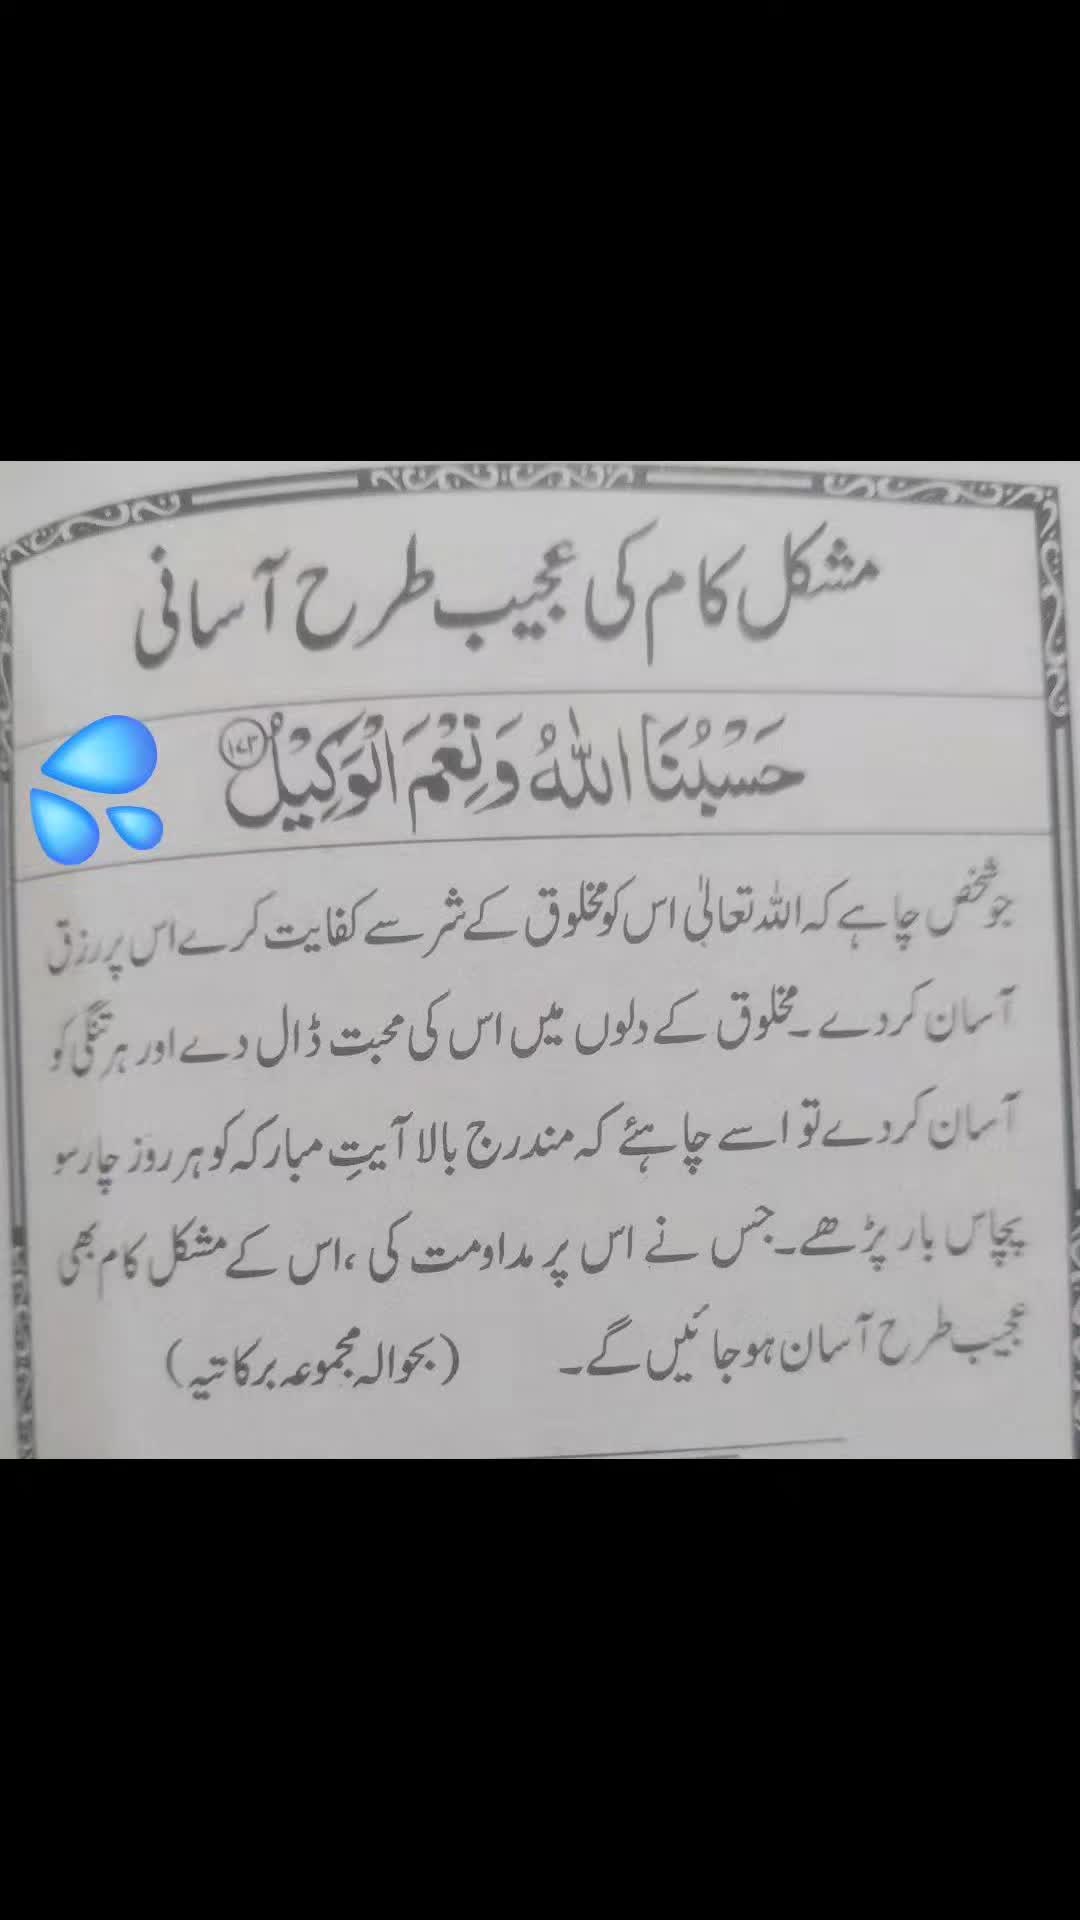 مشکل کام کی عجیب طرح آسانی
حَسْبُنَا اللّٰهُ وَنِعْمَ الْوَكِيْلُ ۝۱۷۳
جو شخص چاہے کہ اللہ تعالیٰ اس کو مخلوق کے شر سے کفایت کرے اس پر رزق
آسان کردے ۔ مخلوق کے دلوں میں اس کی محبت ڈال دے اور ہر تنگی کو
آسان کردے تو اسے چاہئے کہ مندرج بالا آیتِ مبارکہ کو ہر روز چار سو
پچاس بار پڑھے۔ جس نے اس پر مداومت کی ، اس کے مشکل کام بھی
عجیب طرح آسان ہو جائیں گے ۔ (بحوالہ مجموعہ برکاتیہ)